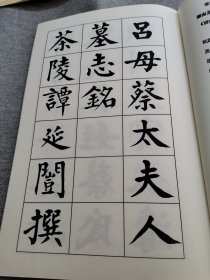 呂母蔡太夫人
墓志銘
茶陵譚延闓撰